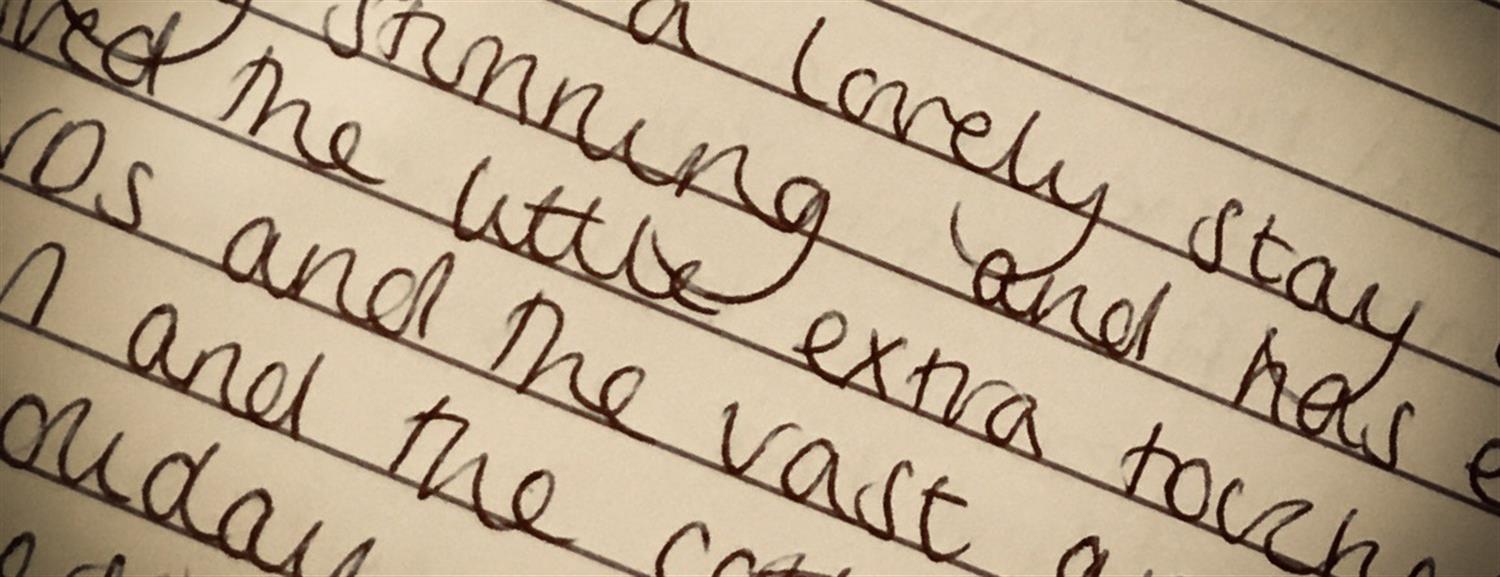 a lovely stay
stunning and has
the little extra touche
and the vast
and the
oliday